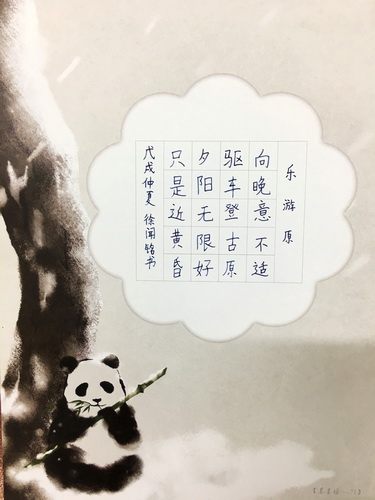 乐游原
向晚意不适
驱车登古原
夕阳无限好
只是近黄昏
戊戌仲夏 徐闻铭书